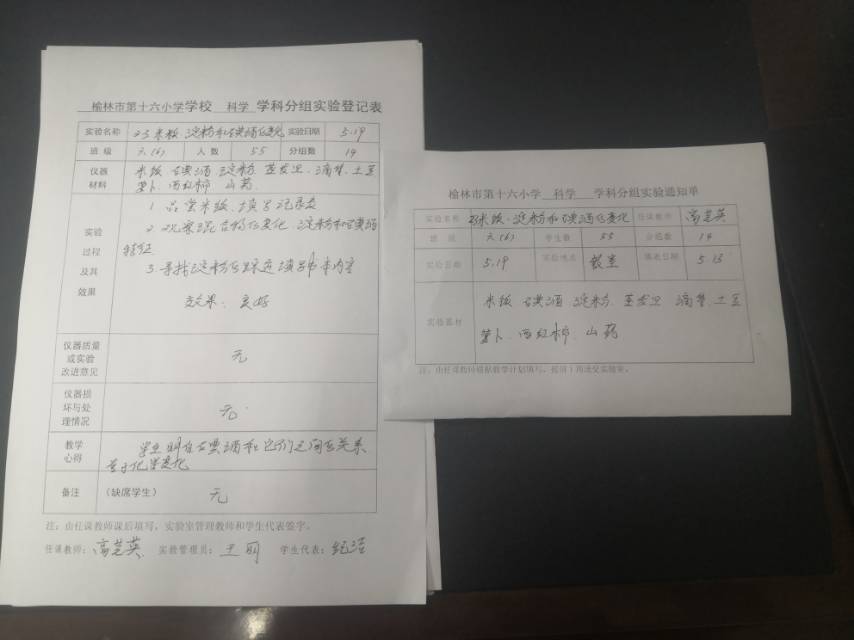 榆林市第十六小学学校 科学 学科分组实验登记表
实验名称 2.3米饭 淀粉和碘酒的变化 实验日期 5.19
班级 六(6) 人数 55 分组数 14
仪器材料 米饭 碘酒 淀粉 蒸发皿 滴管 土豆
萝卜 西红柿 山药
实验过程及其效果
1 品尝米饭、填写记录表
2 观察混合物的变化 淀粉和碘酒
特征
3 寻找淀粉的踪迹填写书本内容
效果: 良好
仪器质量或实验改进意见 无
仪器损坏与处理情况 无
教学心得 学生明白碘酒和它们之间的关系
属于化学变化
备注 (缺席学生) 无
注:由任课教师课后填写,实验室管理教师和学生代表签字。
任课教师:高芝英 实验管理员:王丽 学生代表:
榆林市第十六小学 科学 学科分组实验通知单
实验名称 米饭、淀粉和碘酒的变化 任课教师 高芝英
班级 六(6) 学生数 55 分组数 14
实验日期 5.19 实验地点 教室 填表日期 5.13
实验器材 米饭 碘酒 淀粉 蒸发皿 滴管 土豆
萝卜 西红柿 山药
注:由任课教师根据教学计划填写,提前1周送交实验室。